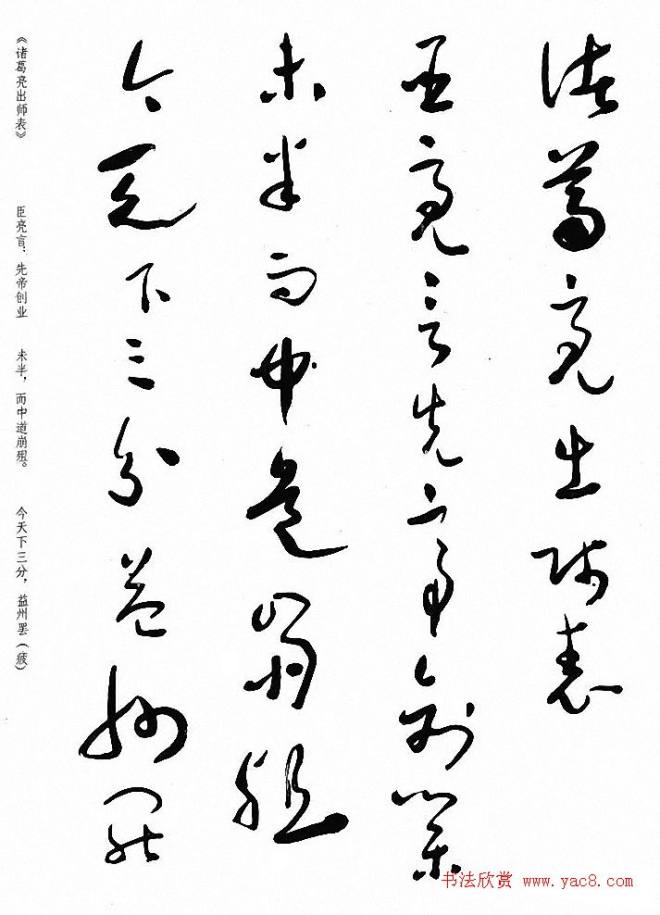 诸葛亮出师表
臣亮言先帝创业
未半而中道崩殂
今天下三分益州罢
《诸葛亮出师表》 臣亮言：先帝创业 未半，而中道崩殂。 今天下三分，益州罢（疲）
书法欣赏 www.yac8.com